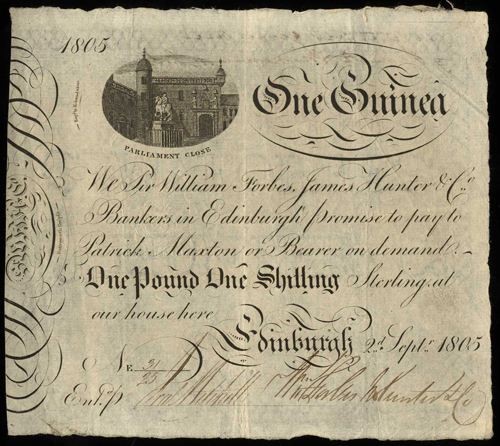 1805
One Guinea
PARLIAMENT CLOSE
We Sir William Forbes, James Hunter & Co.
Bankers in Edinburgh promise to pay to
Patrick Maxton or Bearer on demand.
One Pound One Shilling Sterling. at
our house here
Edinburgh 2d. Septr. 1805
No.
Entd. p
Wm Forbes J Hunter & Co